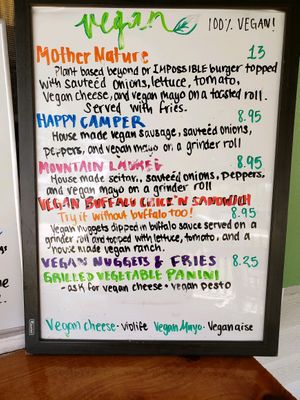 vegan
100% VEGAN!
Mother Nature 13
Plant based beyond or IMPOSSIBLE burger topped
with sautéed onions, lettuce, tomato,
vegan cheese, and vegan mayo on a toasted roll.
Served with fries.
HAPPY CAMPER 8.95
House made vegan sausage, sautéed onions,
peppers, and vegan mayo on a grinder roll
MOUNTAIN LAUREL 8.95
House made seitan, sautéed onions, peppers,
and vegan mayo on a grinder roll
VEGAN BUFFALO CHIK'N SANDWICH
Try it without buffalo too! 8.95
Vegan nuggets dipped in buffalo sauce served on a
grinder roll and topped with lettuce, tomato, and a
house made vegan ranch.
VEGAN NUGGETS & FRIES 8.25
GRILLED VEGETABLE PANINI
- ask for vegan cheese + vegan pesto
Vegan cheese - violife Vegan Mayo - Veganaise